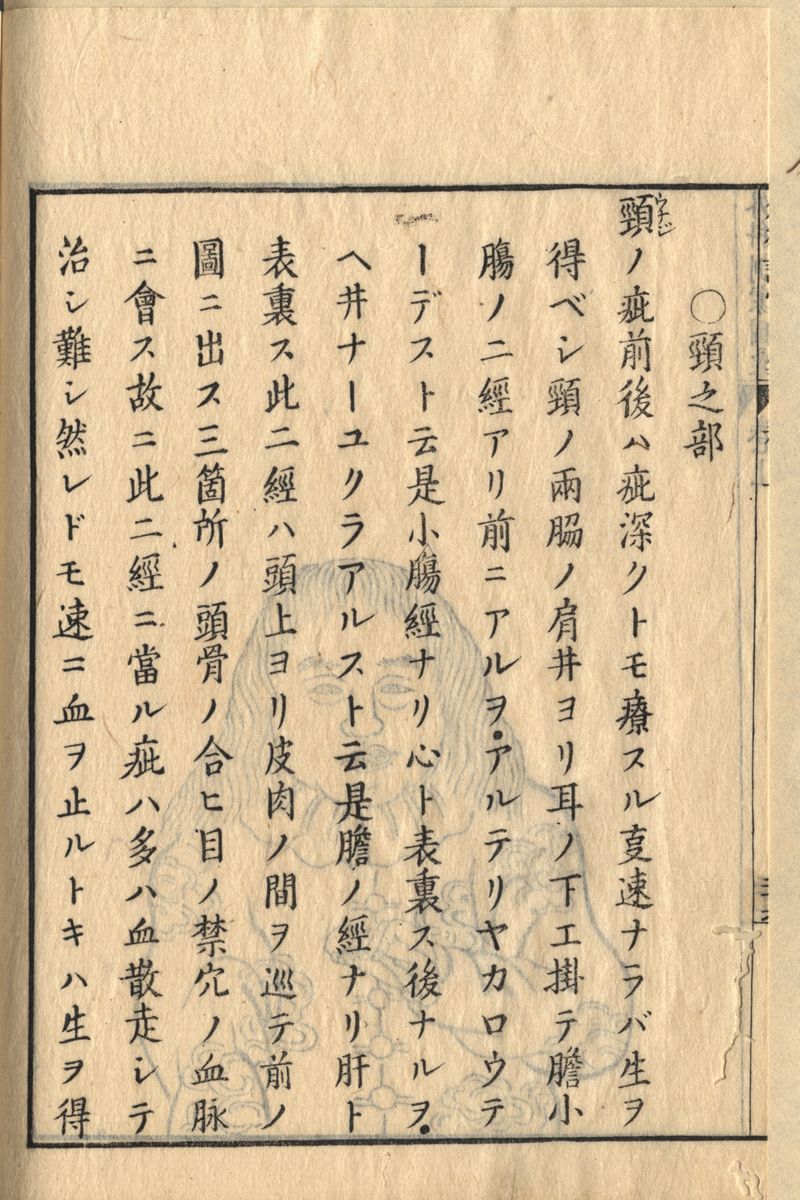 〇頸之部
頸ノ疵前後ハ疵深クトモ療スル𠮷速ナラバ生ヲ
得ベシ頸ノ兩脇ノ肩井ヨリ耳ノ下エ掛テ膽小
膓ノ二經アリ前ニアルヲ・アルテリヤカロウテ
ーデスト云是小膓經ナリ心ト表裏ス後ナルヲ・
ヘ井ナーユクラアルスト云是膽ノ經ナリ肝ト
表裏ス此二經ハ頭上ヨリ皮肉ノ間ヲ巡テ前ノ
圖ニ出ス三箇所ノ頭骨ノ合ヒ目ノ禁穴ノ血脉
ニ會ス故ニ此二經ニ當ル疵ハ多ハ血散走シテ
治シ難シ然レドモ速ニ血ヲ止ルトキハ生ヲ得